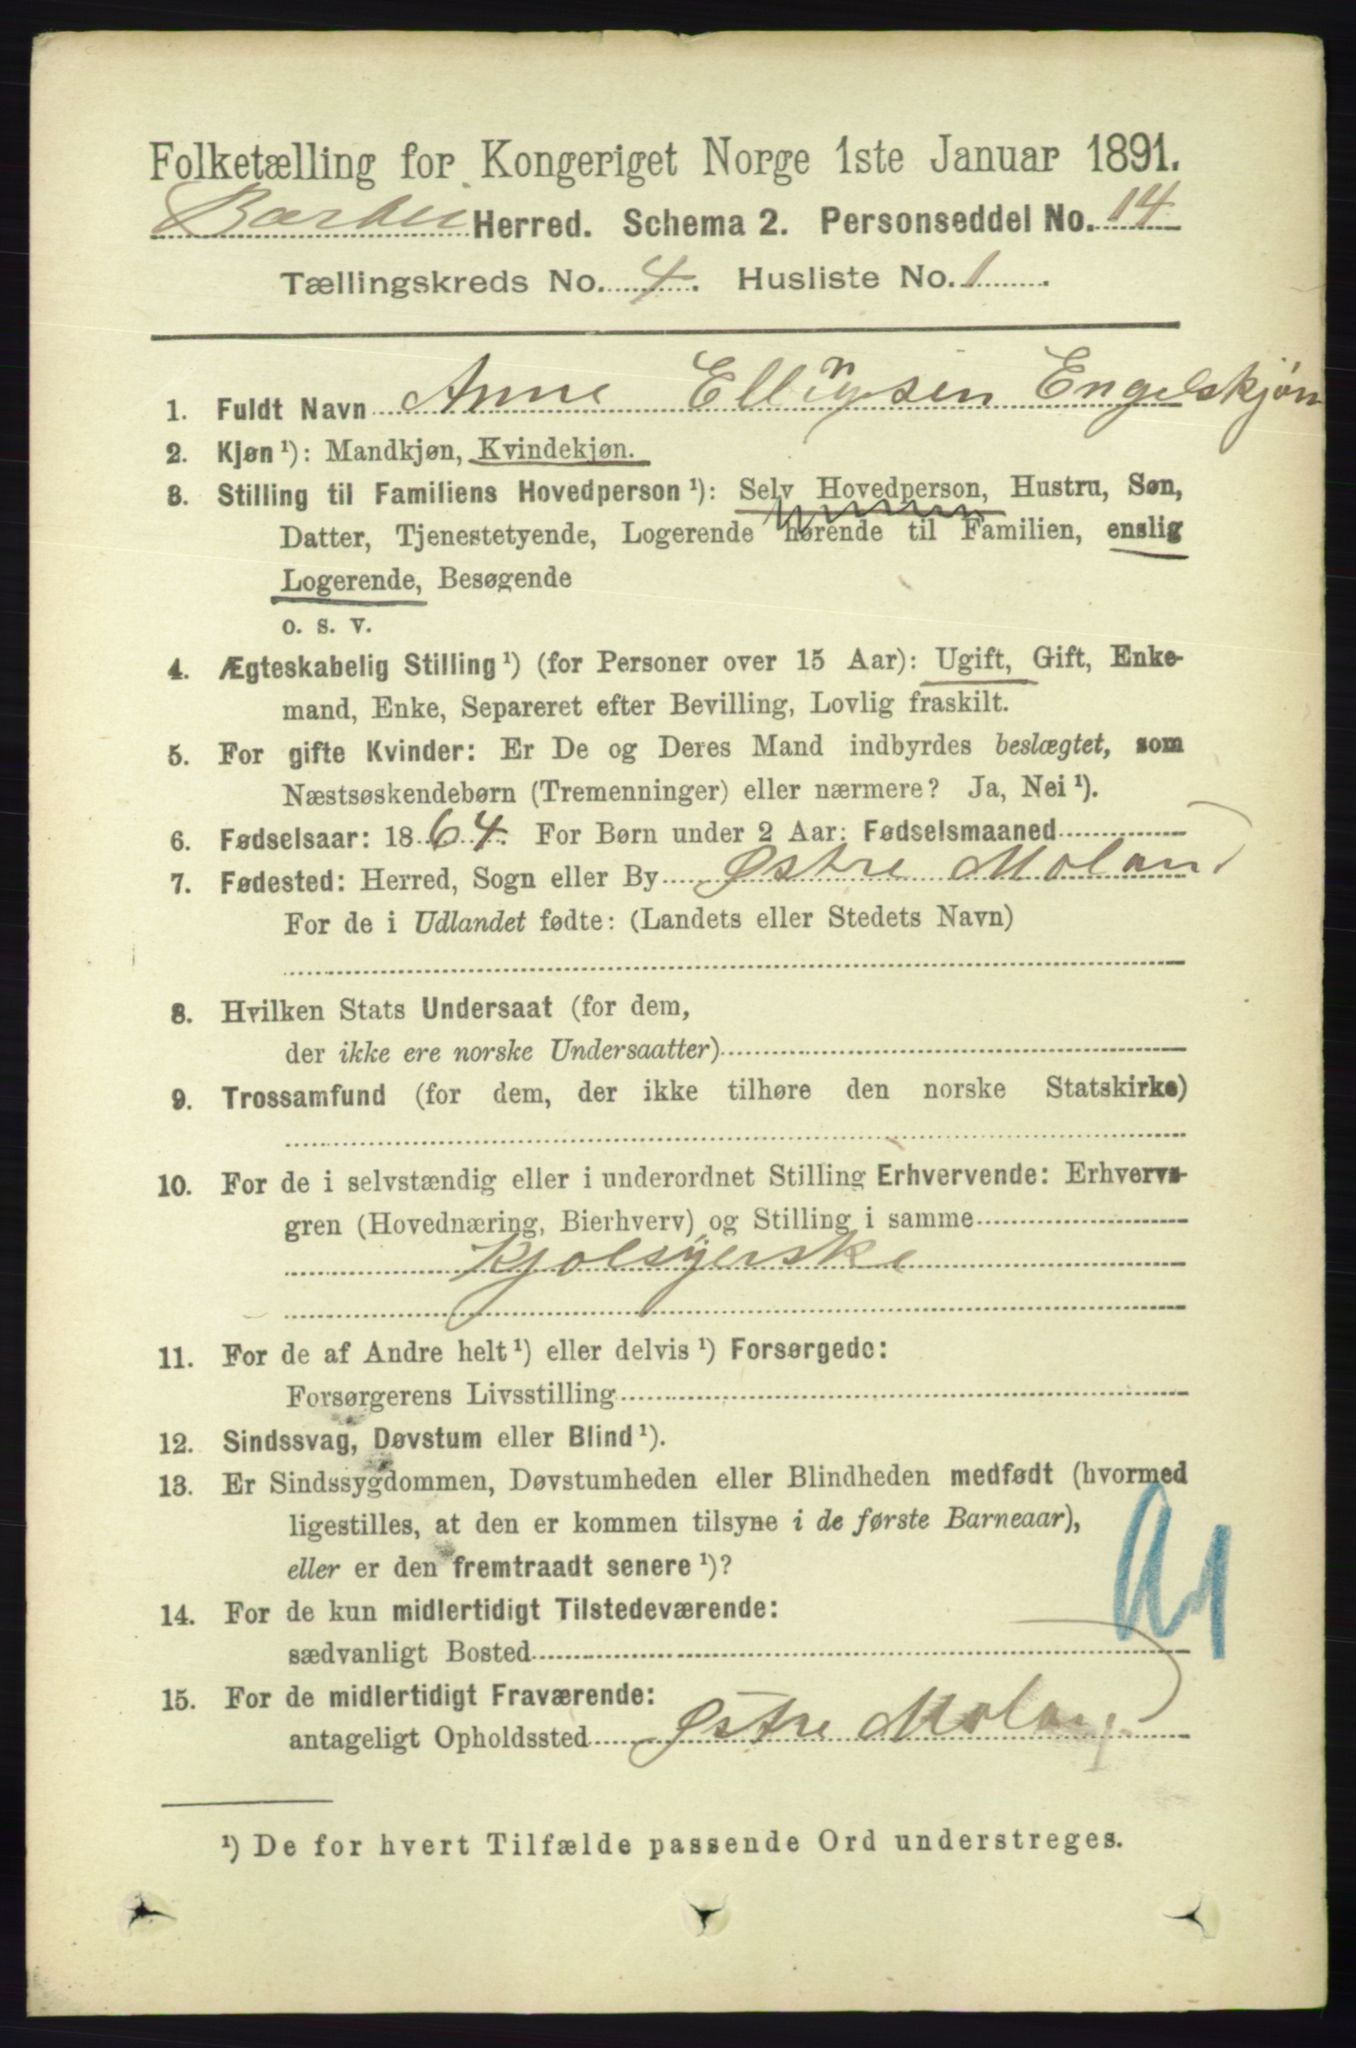 Folketælling for Kongeriget Norge 1ste Januar 1891.
Barbu Herred. Schema 2. Personseddel No. 14
Tællingskreds No. 4. Husliste No. 1.
1. Fuldt Navn Anne Ellingsen Engelskjøn
2. Kjøn¹): Mandkjøn, Kvindekjøn.
3. Stilling til Familiens Hovedperson¹): Selv Hovedperson, Hustru, Søn,
Datter, Tjenestetyende, Logerende hørende til Familien, enslig
Logerende, Besøgende
o. s. v.
4. Ægteskabelig Stilling¹) (for Personer over 15 Aar): Ugift, Gift, Enke-
mand, Enke, Separeret efter Bevilling, Lovlig fraskilt.
5. For gifte Kvinder: Er De og Deres Mand indbyrdes beslægtet, som
Næstsøskendebørn (Tremenninger) eller nærmere? Ja, Nei¹).
6. Fødselsaar: 1864. For Børn under 2 Aar: Fødselsmaaned
7. Fødested: Herred, Sogn eller By Østre Moland
For de i Udlandet fødte: (Landets eller Stedets Navn)
8. Hvilken Stats Undersaat (for dem,
der ikke ere norske Undersaatter)
9. Trossamfund (for dem, der ikke tilhøre den norske Statskirke)
10. For de i selvstændig eller i underordnet Stilling Erhvervende: Erhvervs-
gren (Hovednæring, Bierhverv) og Stilling i samme
Kjolsyerske
11. For de af Andre helt¹) eller delvis¹) Forsørgede:
Forsørgerens Livsstilling
12. Sindssvag, Døvstum eller Blind¹).
13. Er Sindssygdommen, Døvstumheden eller Blindheden medfødt (hvormed
ligestilles, at den er kommen tilsyne i de første Barneaar),
eller er den fremtraadt senere¹)?
14. For de kun midlertidigt Tilstedeværende:
sædvanligt Bosted
15. For de midlertidigt Fraværende:
antageligt Opholdssted Østre Moland
¹) De for hvert Tilfælde passende Ord understreges.